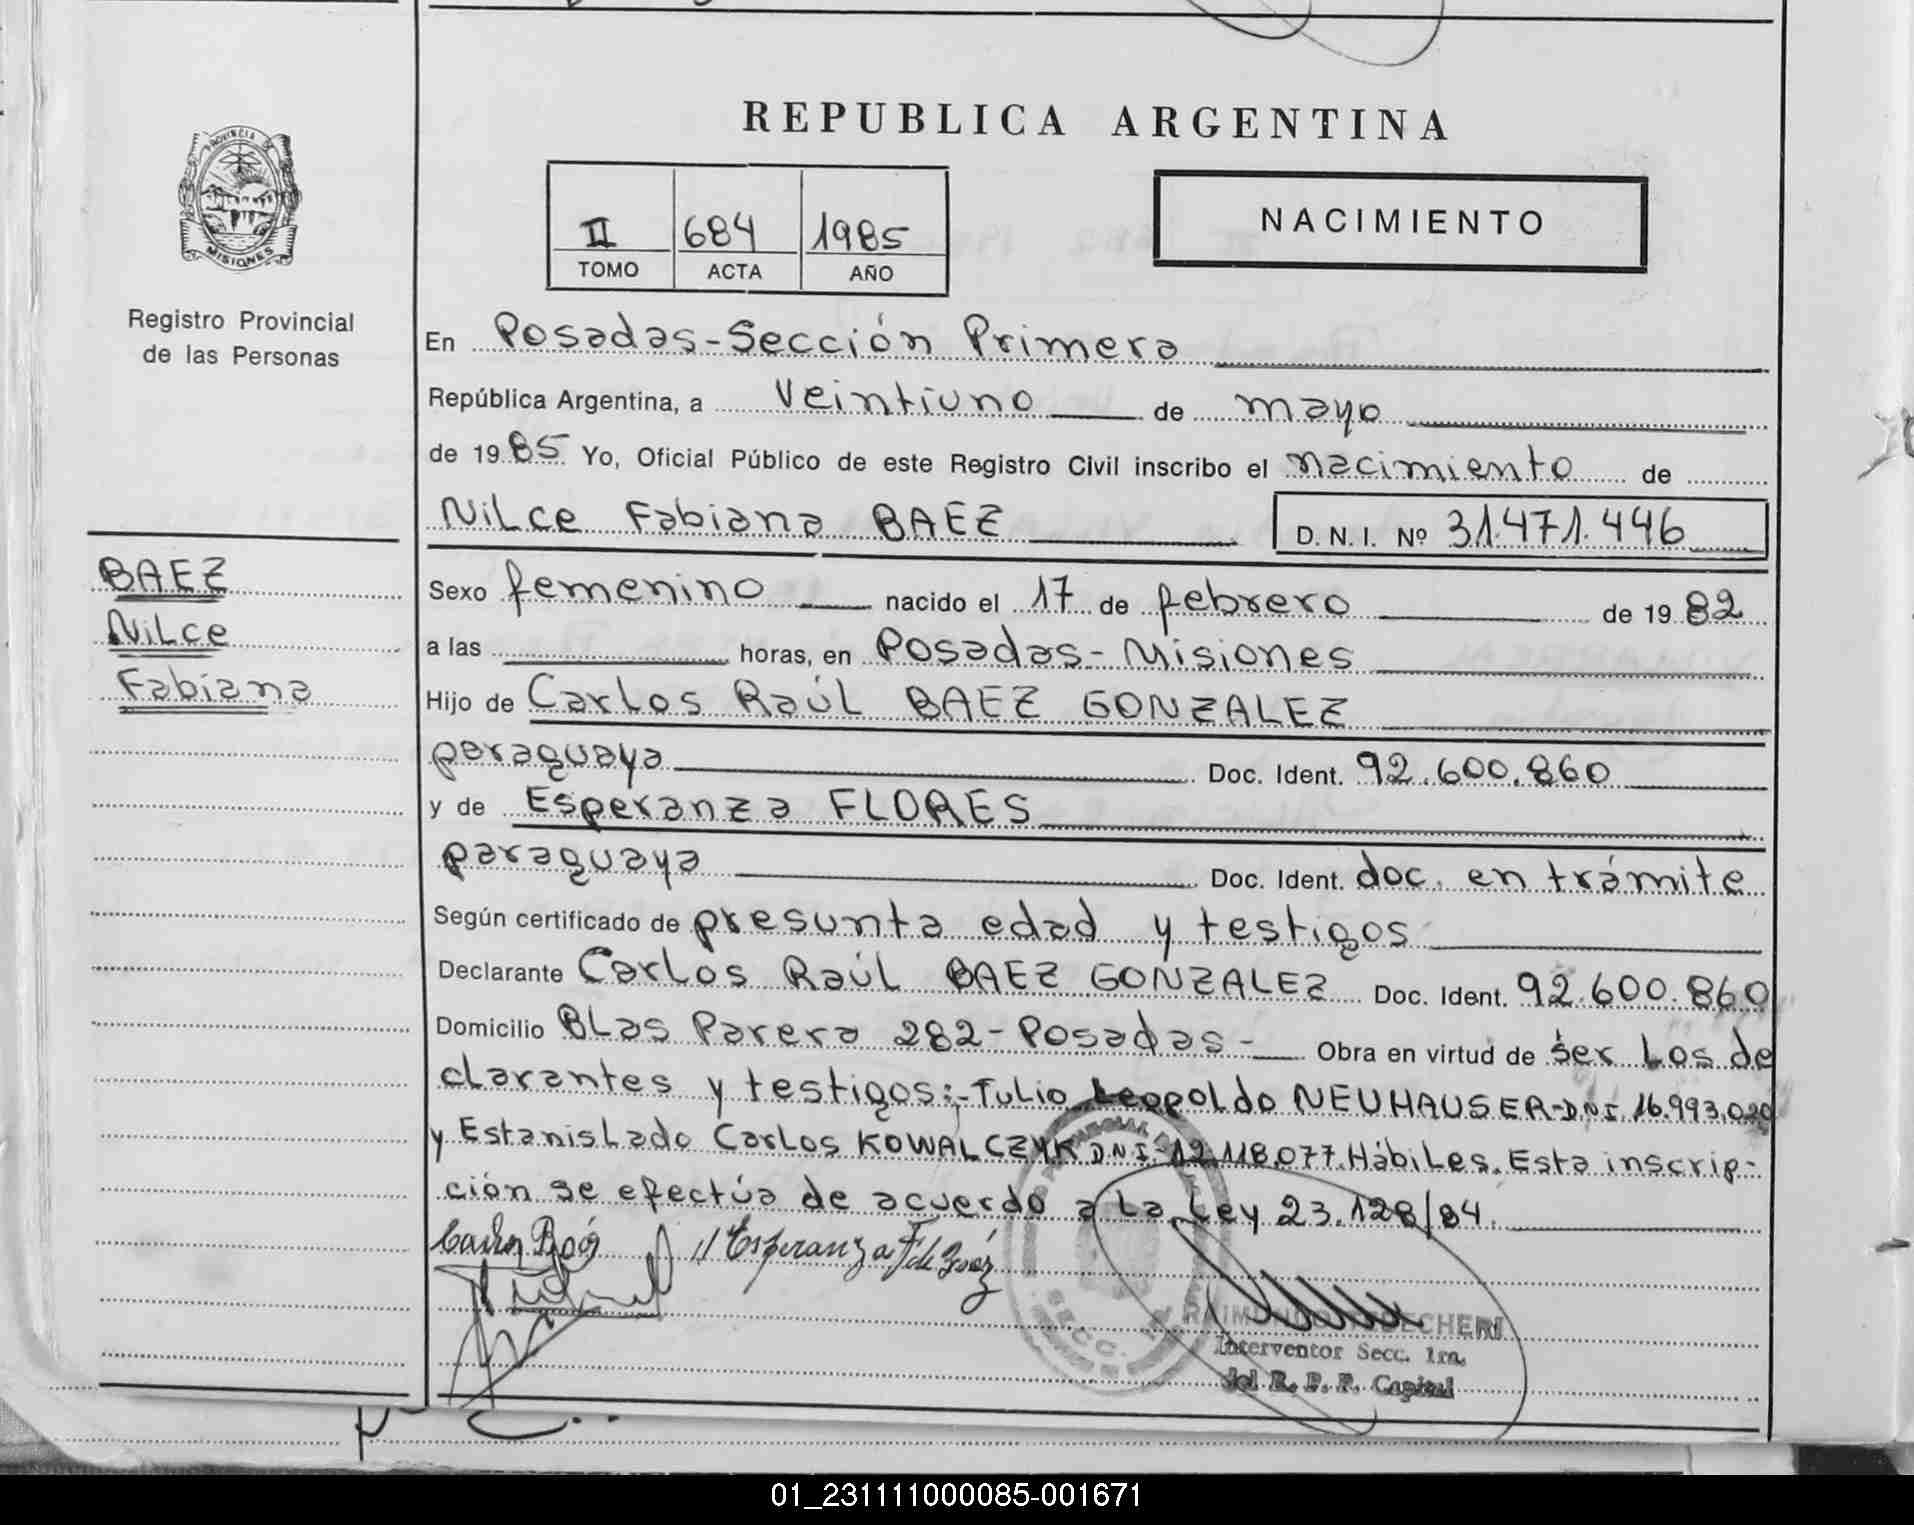 REPUBLICA ARGENTINA
PROVINCIA DE
MISIONES
II 684 1985
TOMO ACTA AÑO
NACIMIENTO
Registro Provincial
de las Personas
En Posadas-Sección Primera
República Argentina, a veintiuno de mayo
de 1985 Yo, Oficial Público de este Registro Civil inscribo el nacimiento de
Nilce Fabiana BAEZ D. N. I. Nº 31.471.446
BAEZ
Nilce
Fabiana
Sexo femenino nacido el 17 de febrero de 1982
a las horas, en Posadas-Misiones
Hijo de Carlos Raúl BAEZ GONZALEZ
paraguaya Doc. Ident. 92.600.860
y de Esperanza FLORES
paraguaya Doc. Ident. doc. en trámite
Según certificado de presunta edad y testigos
Declarante Carlos Raúl BAEZ GONZALEZ Doc. Ident. 92.600.860
Domicilio Blas Parera 282-Posadas- Obra en virtud de ser los de
clarantes y testigos:-Tulio Leopoldo NEUHAUSER-DNI 16.993.020
y Estanislado Carlos KOWALCZYK DNI-12.118.077.Hábiles. Esta inscrip-
ción se efectúa de acuerdo a la Ley 23.128/84.
Esperanza F de
SECC.
Interventor Secc. 1ra.
del R. P. P. Capital
01_231111000085-001671